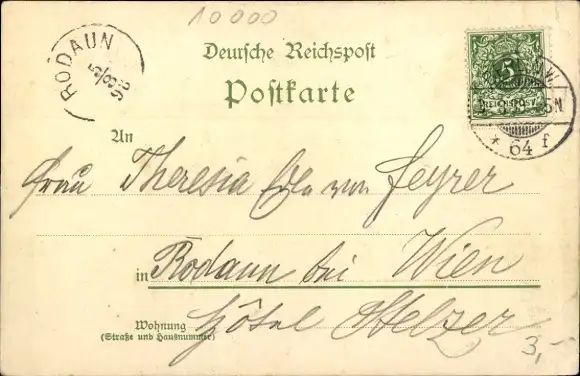 10000
RODAUN
5/8 96
Deutsche Reichspost
Postkarte
5
REICHSPOST
W.
* 64 f
An
Frau Theresia Edle von Feyrer
in Rodaun bei Wien
Wohnung Hôtel Stelzer
(Straße und Hausnummer)
3,-